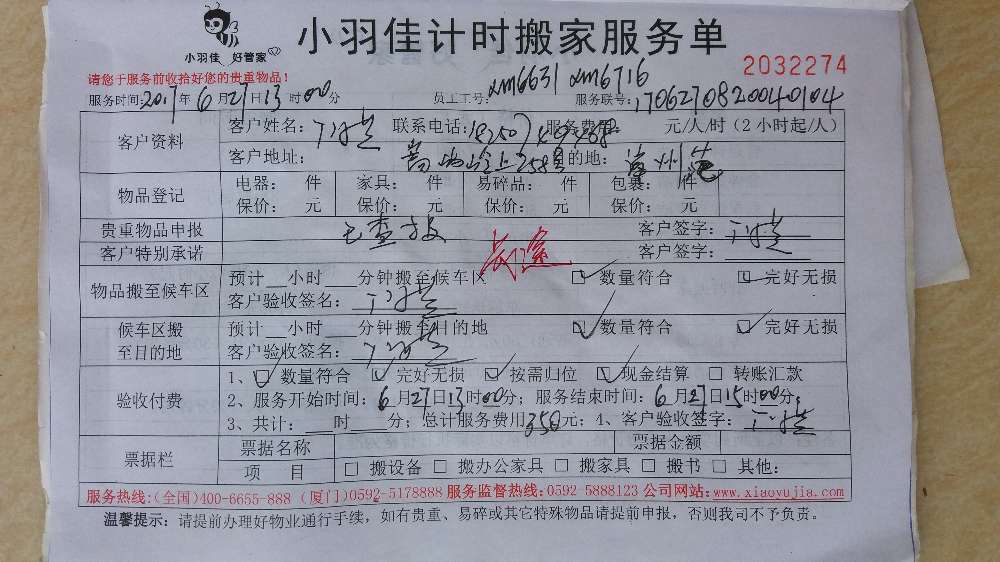 小羽佳 好管家
小羽佳计时搬家服务单
2032274
请您于服务前收拾好您的贵重物品!
服务时间:2017年6月27日13时00分 员工工号: XM6631 XM6716 服务联号:1706270820040104
客户资料 客户姓名: 联系电话: 服务费用: 元/人/时(2小时起/人)
客户地址: 目的地:
物品登记 电器: 件 家具: 件 易碎品: 件 包裹: 件
保价: 元 保价: 元 保价: 元 保价: 元
贵重物品申报 客户签字:
客户特别承诺 客户签字:
物品搬至候车区 预计__小时___分钟搬至候车区 数量符合 完好无损
客户验收签名:
候车区搬至目的地 预计__小时___分钟搬至目的地 数量符合 完好无损
客户验收签名:
验收付费 1、数量符合 完好无损 按需归位 现金结算 转账汇款
2、服务开始时间:6月27日13时00分;服务结束时间:6月27日15时00分;
3、共计:___时___分;总计服务费用350元;4、客户验收签字:
票据栏 票据名称 票据金额
项目 搬设备 搬办公家具 搬家具 搬书 其他:
服务热线:(全国)400-6655-888 (厦门)0592-5178888 服务监督热线:0592 5888123 公司网站:www.xiaoyujia.com
温馨提示:请提前办理好物业通行手续,如有贵重、易碎或其它特殊物品请提前申报,否则我司不予负责。